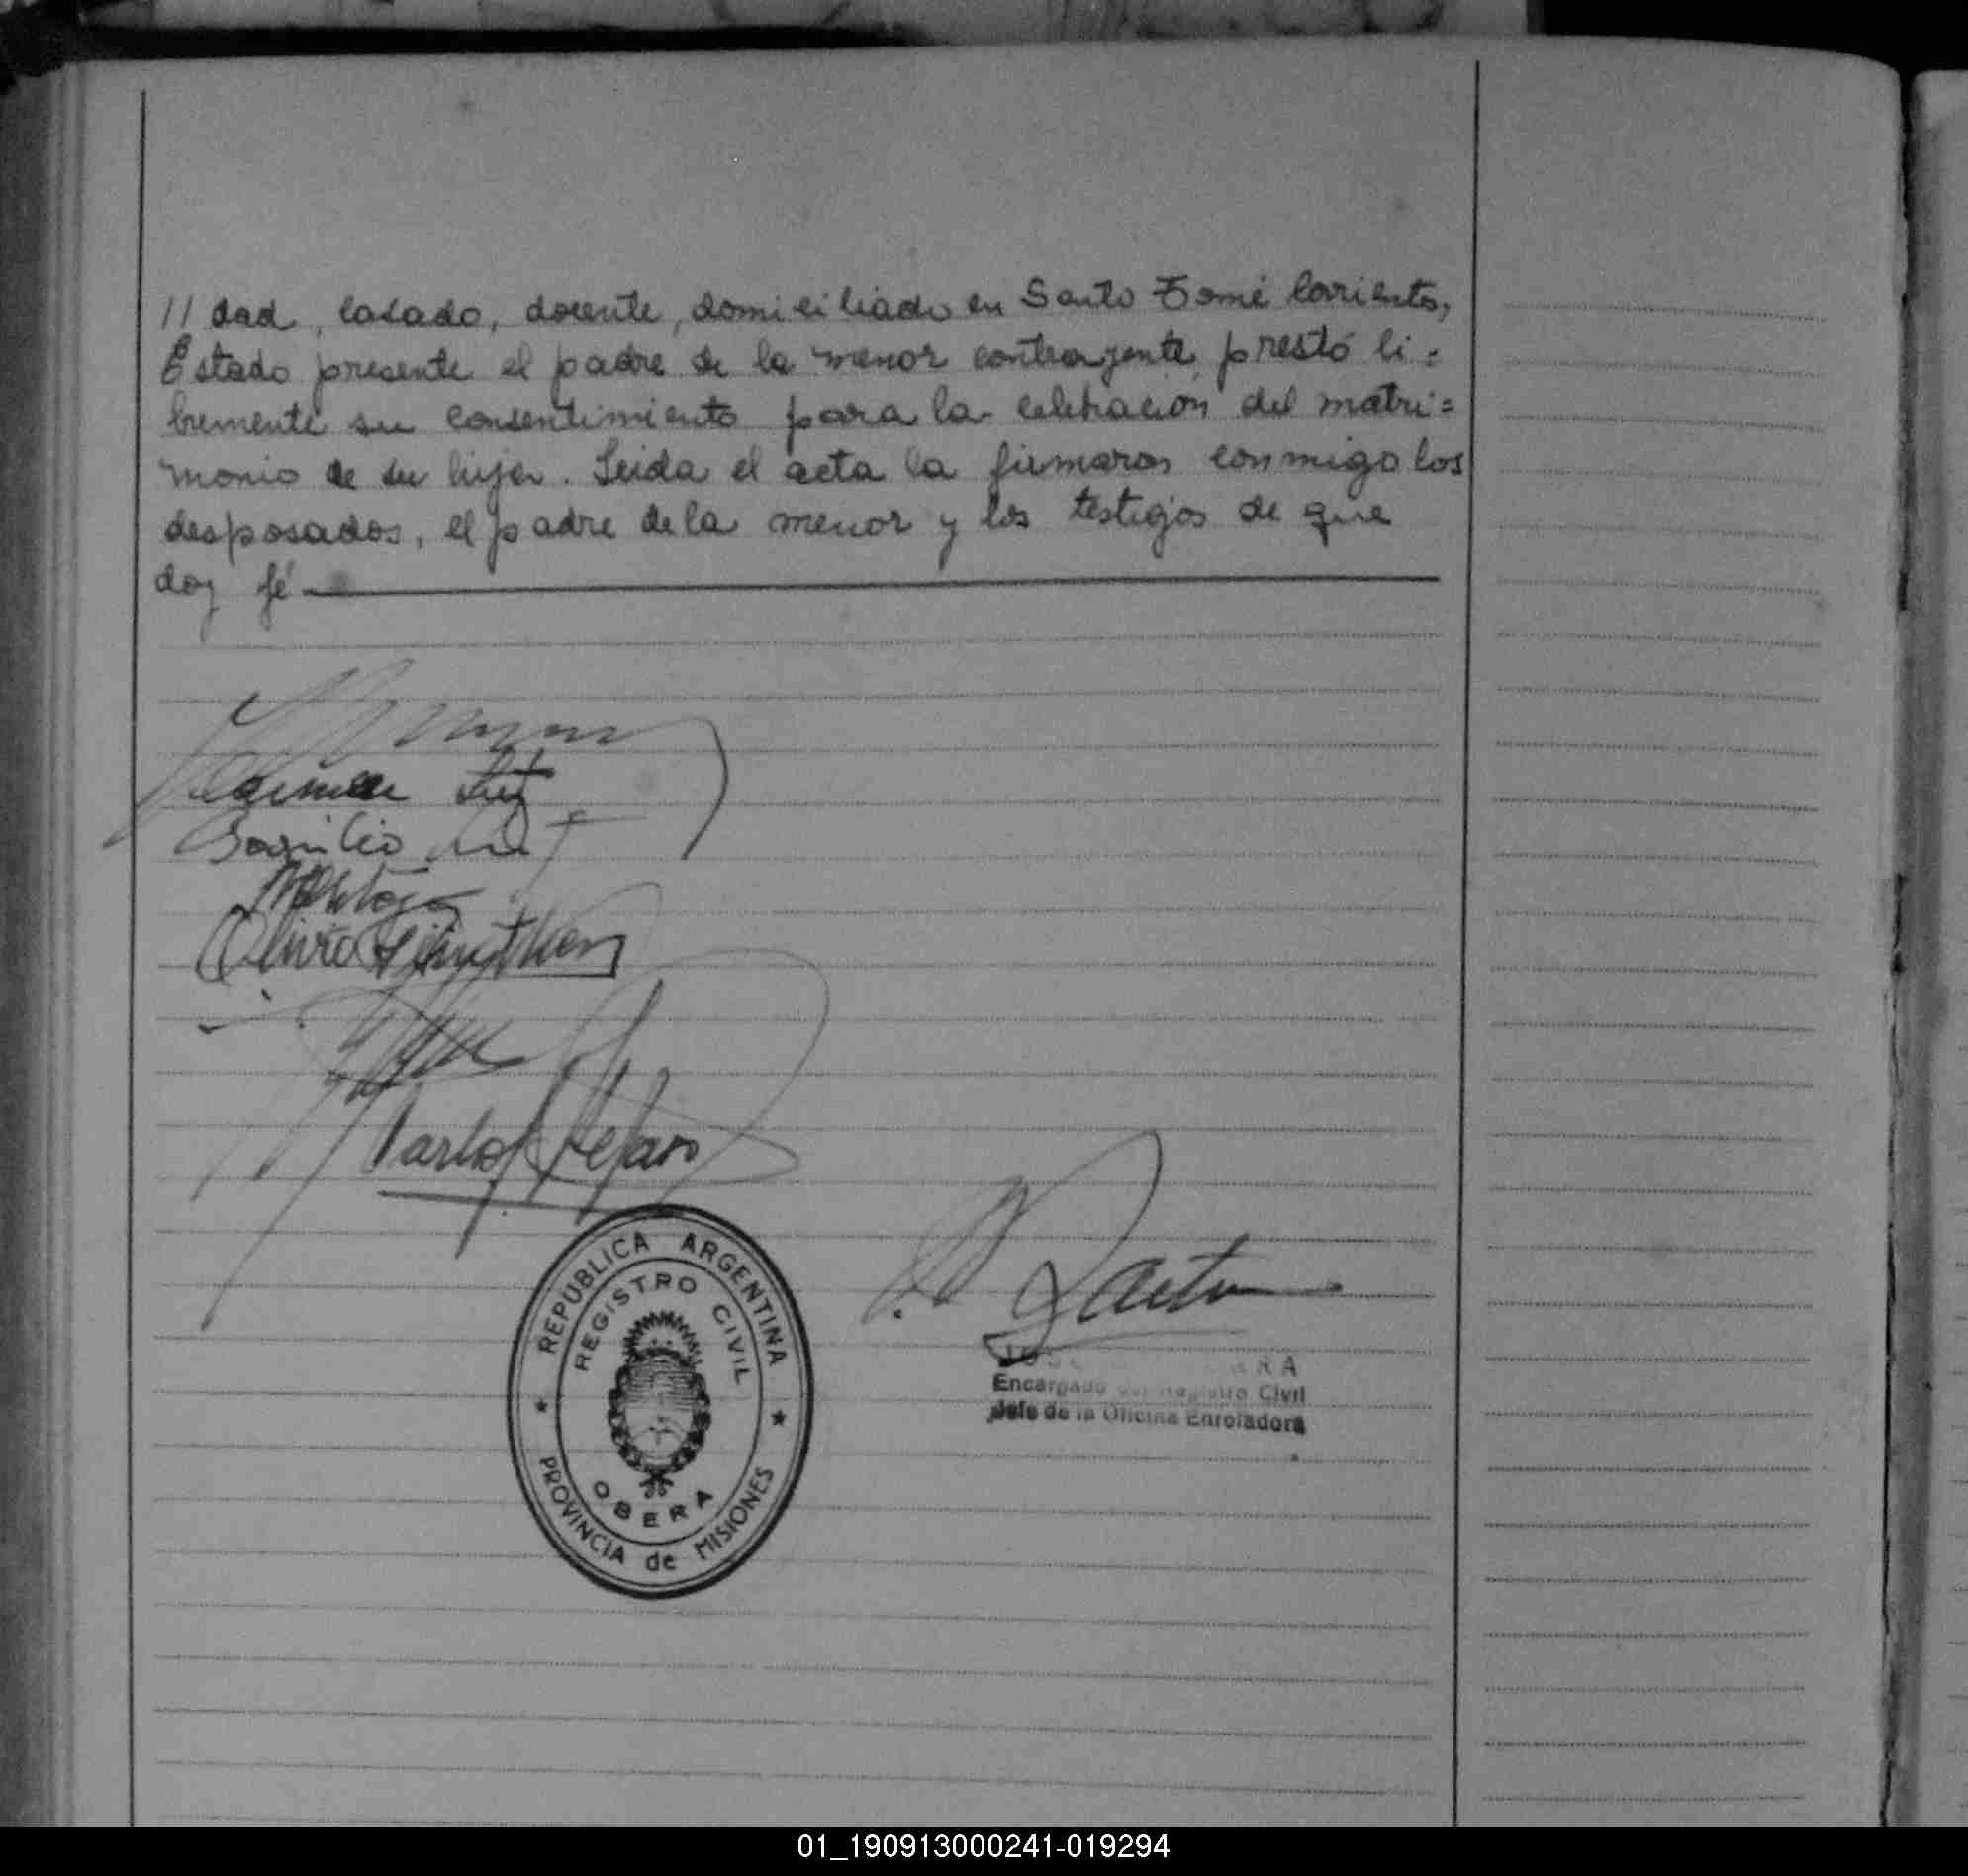 // dad, casado, docente, domiciliado en Santo Tomé Corrientes,
Estado presente el padre de la menor contrayente, prestó li=
bremente su consentimiento para la celebración del matri=
monio de su hija. Leida el acta la firmaron conmigo los
desposados, el padre de la menor y los testigos de que
doy fé
Carmen
Basilio
Olivio
Carlos
REPUBLICA ARGENTINA
REGISTRO CIVIL
OBERA
PROVINCIA de MISIONES
Encargado del Registro Civil
Jefe de la Oficina Enroladora
01_190913000241-019294